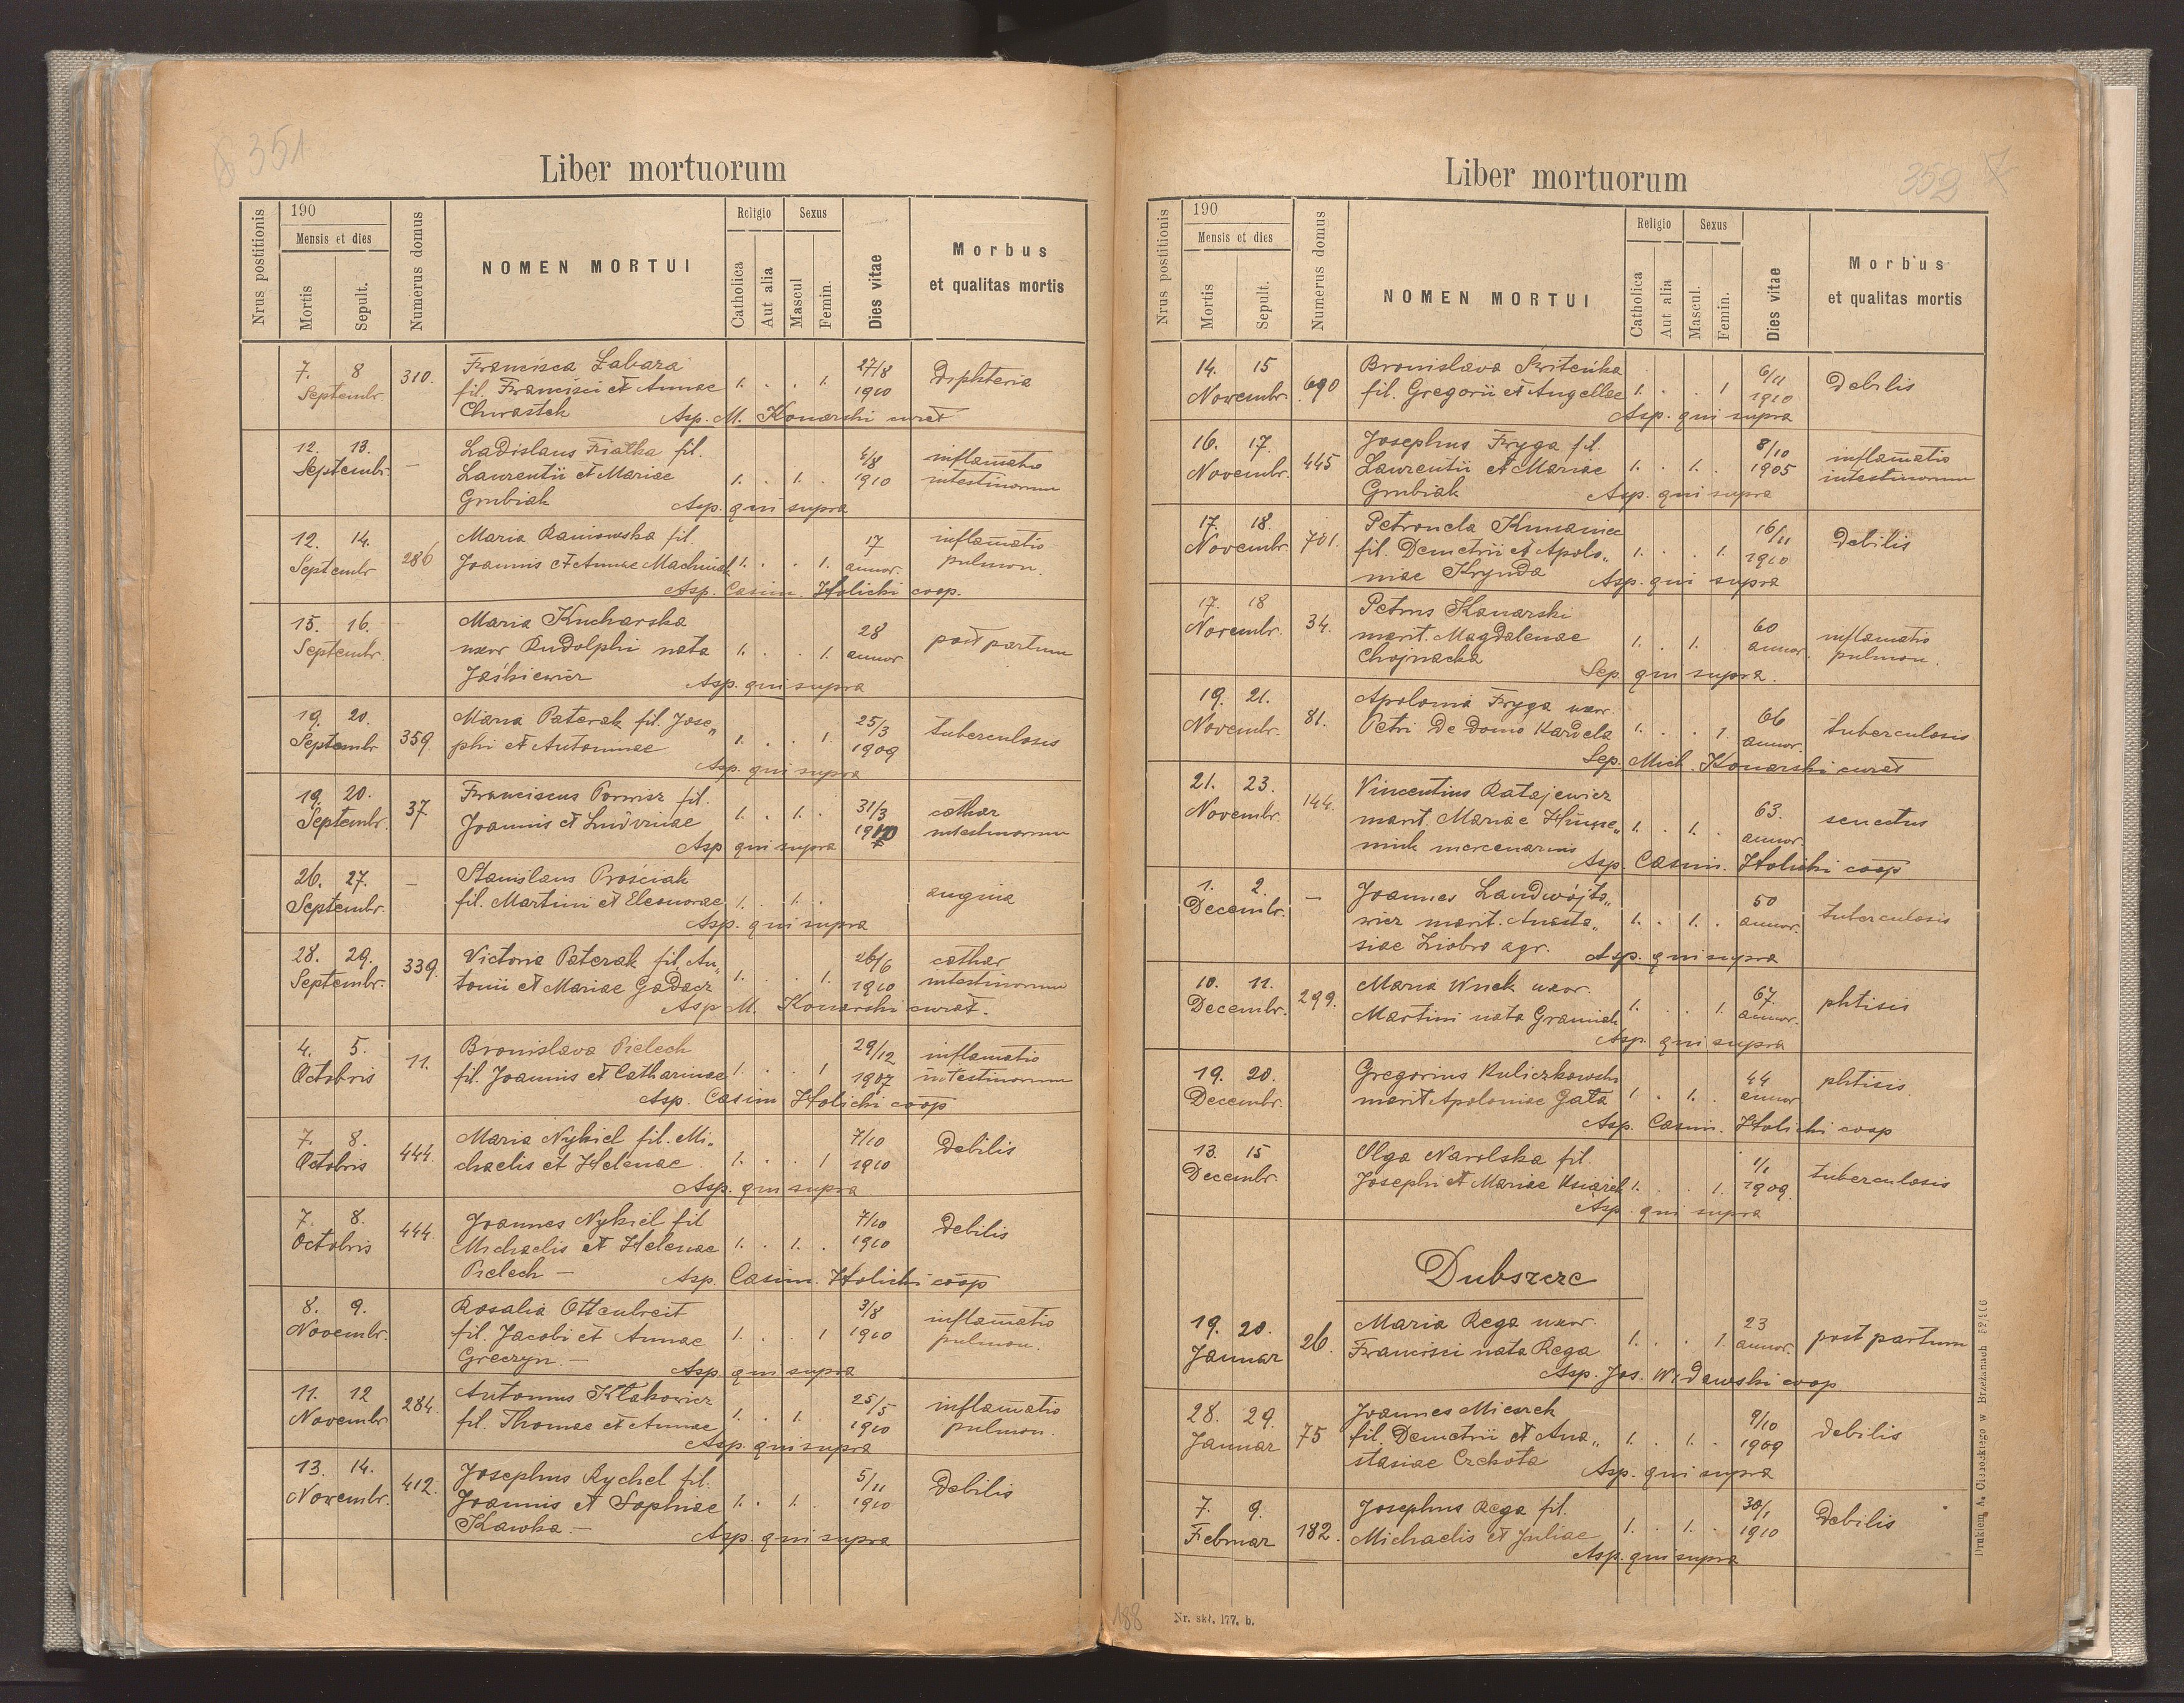 351
Liber mortuorum
Nrus postitionis
190
Mensis et dies
Mortis
Sepult.
Numerus domus
NOMEN MORTUI
Religio
Catholica
Aut alia
Sexus
Mascul
Femin.
Dies vitae
Morbus
et qualitas mortis
7. 8 Septembr. 310. Francisca Żabara 27/8 Diphteria
fil. Francisci et Annae 1. . . 1. 1910
Chrastek Asp. M. Konarski curat
12. 13. Septembr. — Ladislaus Fiałka fil. 4/8 inflam̄atio
Laurentii et Mariae 1. . 1. . 1910 intestinorum
Grubiak Asp. qui supra
12. 14. Septembr 286 Maria Raniowska fil. 17 inflam̄atio
Joannis et Annae Machniak 1. . . 1. annor. pulmon.
Asp. Casim. Holicki coop.
15. 16. Septembr. Maria Kucharska 28
uxor Rudolphi nata 1. . . 1. annor post partum
Jaśkiewicz Asp. qui supra
19. 20. Septembr 359. Maria Paterak fil. Jose„ 25/3 tuberculosis
phi et Antoninae 1. . . 1. 1909
Asp. qui supra
19. 20. Septembr. 37 Franciscus Porwisz fil. 31/3 cathar
Joannis et Ludvinae 1. . 1. . 1910 intestinorum
Asp qui supra
26. 27. Septembr. — Stanislaus Prościak
fil. Martini et Eleonorae 1. . 1. . angina
Asp. qui supra
28. 29. Septembr. 339. Victoria Paterak fil. An„ 26/6 cathar
tonii et Mariae Gadacz 1. . . 1. 1910 intestinorum
Asp M. Konarski curat.
4. 5. Octobris 11. Bronislava Pielech 29/12 inflamatio
fil. Joannis et Catharinae 1. . . 1 1907 intestinorum
Asp. Casim Holicki coop
7. 8. Octobris 444. Maria Nykiel fil. Mi„ 7/10 Debilis
chaelis et Helenae 1. . . 1 1910
Asp. qui supra
7. 8. Octobris 444. Joannes Nykiel fil 7/10 Debilis
Michaelis et Helenae 1. . 1. . 1910
Pielech — Asp. Casim. Holicki coop
8. 9. Novembr. Rosalia Ottenbreit 3/8 inflam̄atio
fil. Jacobi et Annae 1. . . 1 1910 pulmon.
Greczyn. — Asp. qui supra
11. 12 Novembr 284. Antonius Kłakowicz 25/5 inflam̄atio
fil. Thomae et Annae 1. . 1. 1910 pulmon.
Asp. qui supra
13. 14. Novembr. 412. Josephus Rychel fil. 5/11 Debilis
Joannis et Sophiae 1. . 1. . 1910
Kawka. — Asp. qui supra
352
Liber mortuorum
Nrus postitionis
190
Mensis et dies
Mortis
Sepult.
Numerus domus
NOMEN MORTUI
Religio
Catholica
Aut alia
Sexus
Mascul.
Femin.
Dies vitae
Morbus
et qualitas mortis
14. 15 Novembr. 690 Bronislava 6/11 Debilis
fil. Gregorii et Angellae 1. . . 1 1910
Asp. qui supra
16. 17. Novembr. 445 Josephus Fryga fil. 8/10 inflam̄atio
Laurentii et Mariae 1. . 1. . 1905 intestinorum
Grubiak Asp. qui supra
17. 18. Novembr. 701. Petronela Kumaniec 16/11 Debilis
fil. Demetrii et Apolo„ 1. . . 1. 1910
niae Krynda Asp. qui supra
17. 18 Novembr. 34. Petrus Kanarski 60
marit. Magdalenae 1. . 1. annor. inflamatio
Chojnacka pulmon.
Sep. qui supra.
19. 21. Novembr. 81. Apolonia Fryga uxor. 66 tuberculosis
Petri de Domo Kardela 1. . . 1. annor.
Sep. Mich. Konarski curat
21. 23. Novembr. 144. Vincentius Ratajewicz 63. senectus
marit. Mariae 1. . 1. . annor
mercenarius Asp. Casim. Holicki coop
1. 2. Decembr. — Joannes Landwójto„ 50 tuberculosis
wicz marit. Anasta„ 1. . 1. . annor.
siae Ziobro agr. Asp. qui supra
10. 11. Decembr. 299. Maria Wnek uxor. 67. phtisis
Martini nata Graniak 1. . . 1. annor.
Asp. qui supra
19. 20. Decembr. Gregorius Kuliczkowski 44 phtisis
marit Apoloniae Gata 1 . 1. . annor
Asp. Casim. Holicki coop
13. 15 Decembr. Olga Narolska fil. 1/1 tuberculosis
Josephi et Mariae Ksiażek 1. . . 1. 1909.
Asp. qui supra
Dubszcze
19. 20. Januar 26. Maria Rega uxor. 23 post partum
Francisci nata Rega 1. . . 1. annor.
Asp. Jos. Widawski coop
28. 29. Januar 75 Joannes Mieszek 9/10 Debilis
fil. Demetrii et Ana„ 1. . 1. . 1909
stasiae Czekota Asp. qui supra
7. 9. Februar 182. Josephus Rega fil. 30/1 Debilis
Michaelis et Juliae 1. . 1. . 1910
Asp. qui supra
188
Nr. skł. 177. b.